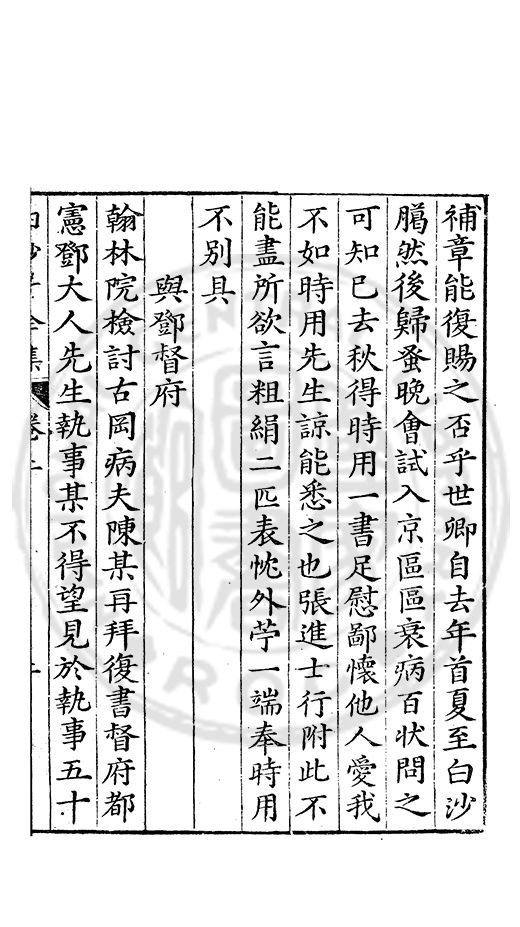 補章能復賜之否乎世卿自去年首夏至白沙
臈然後歸蚤晚會試入京區區衰病百狀問之
可知已去秋得時用一書足慰鄙懷他人愛我
不如時用先生諒能悉之也張進士行附此不
能盡所欲言粗絹二匹表忱外苧一端奉時用
不別具
與鄧督府
翰林院檢討古岡病夫陳某再拜復書督府都
憲鄧大人先生執事某不得望見於執事五十